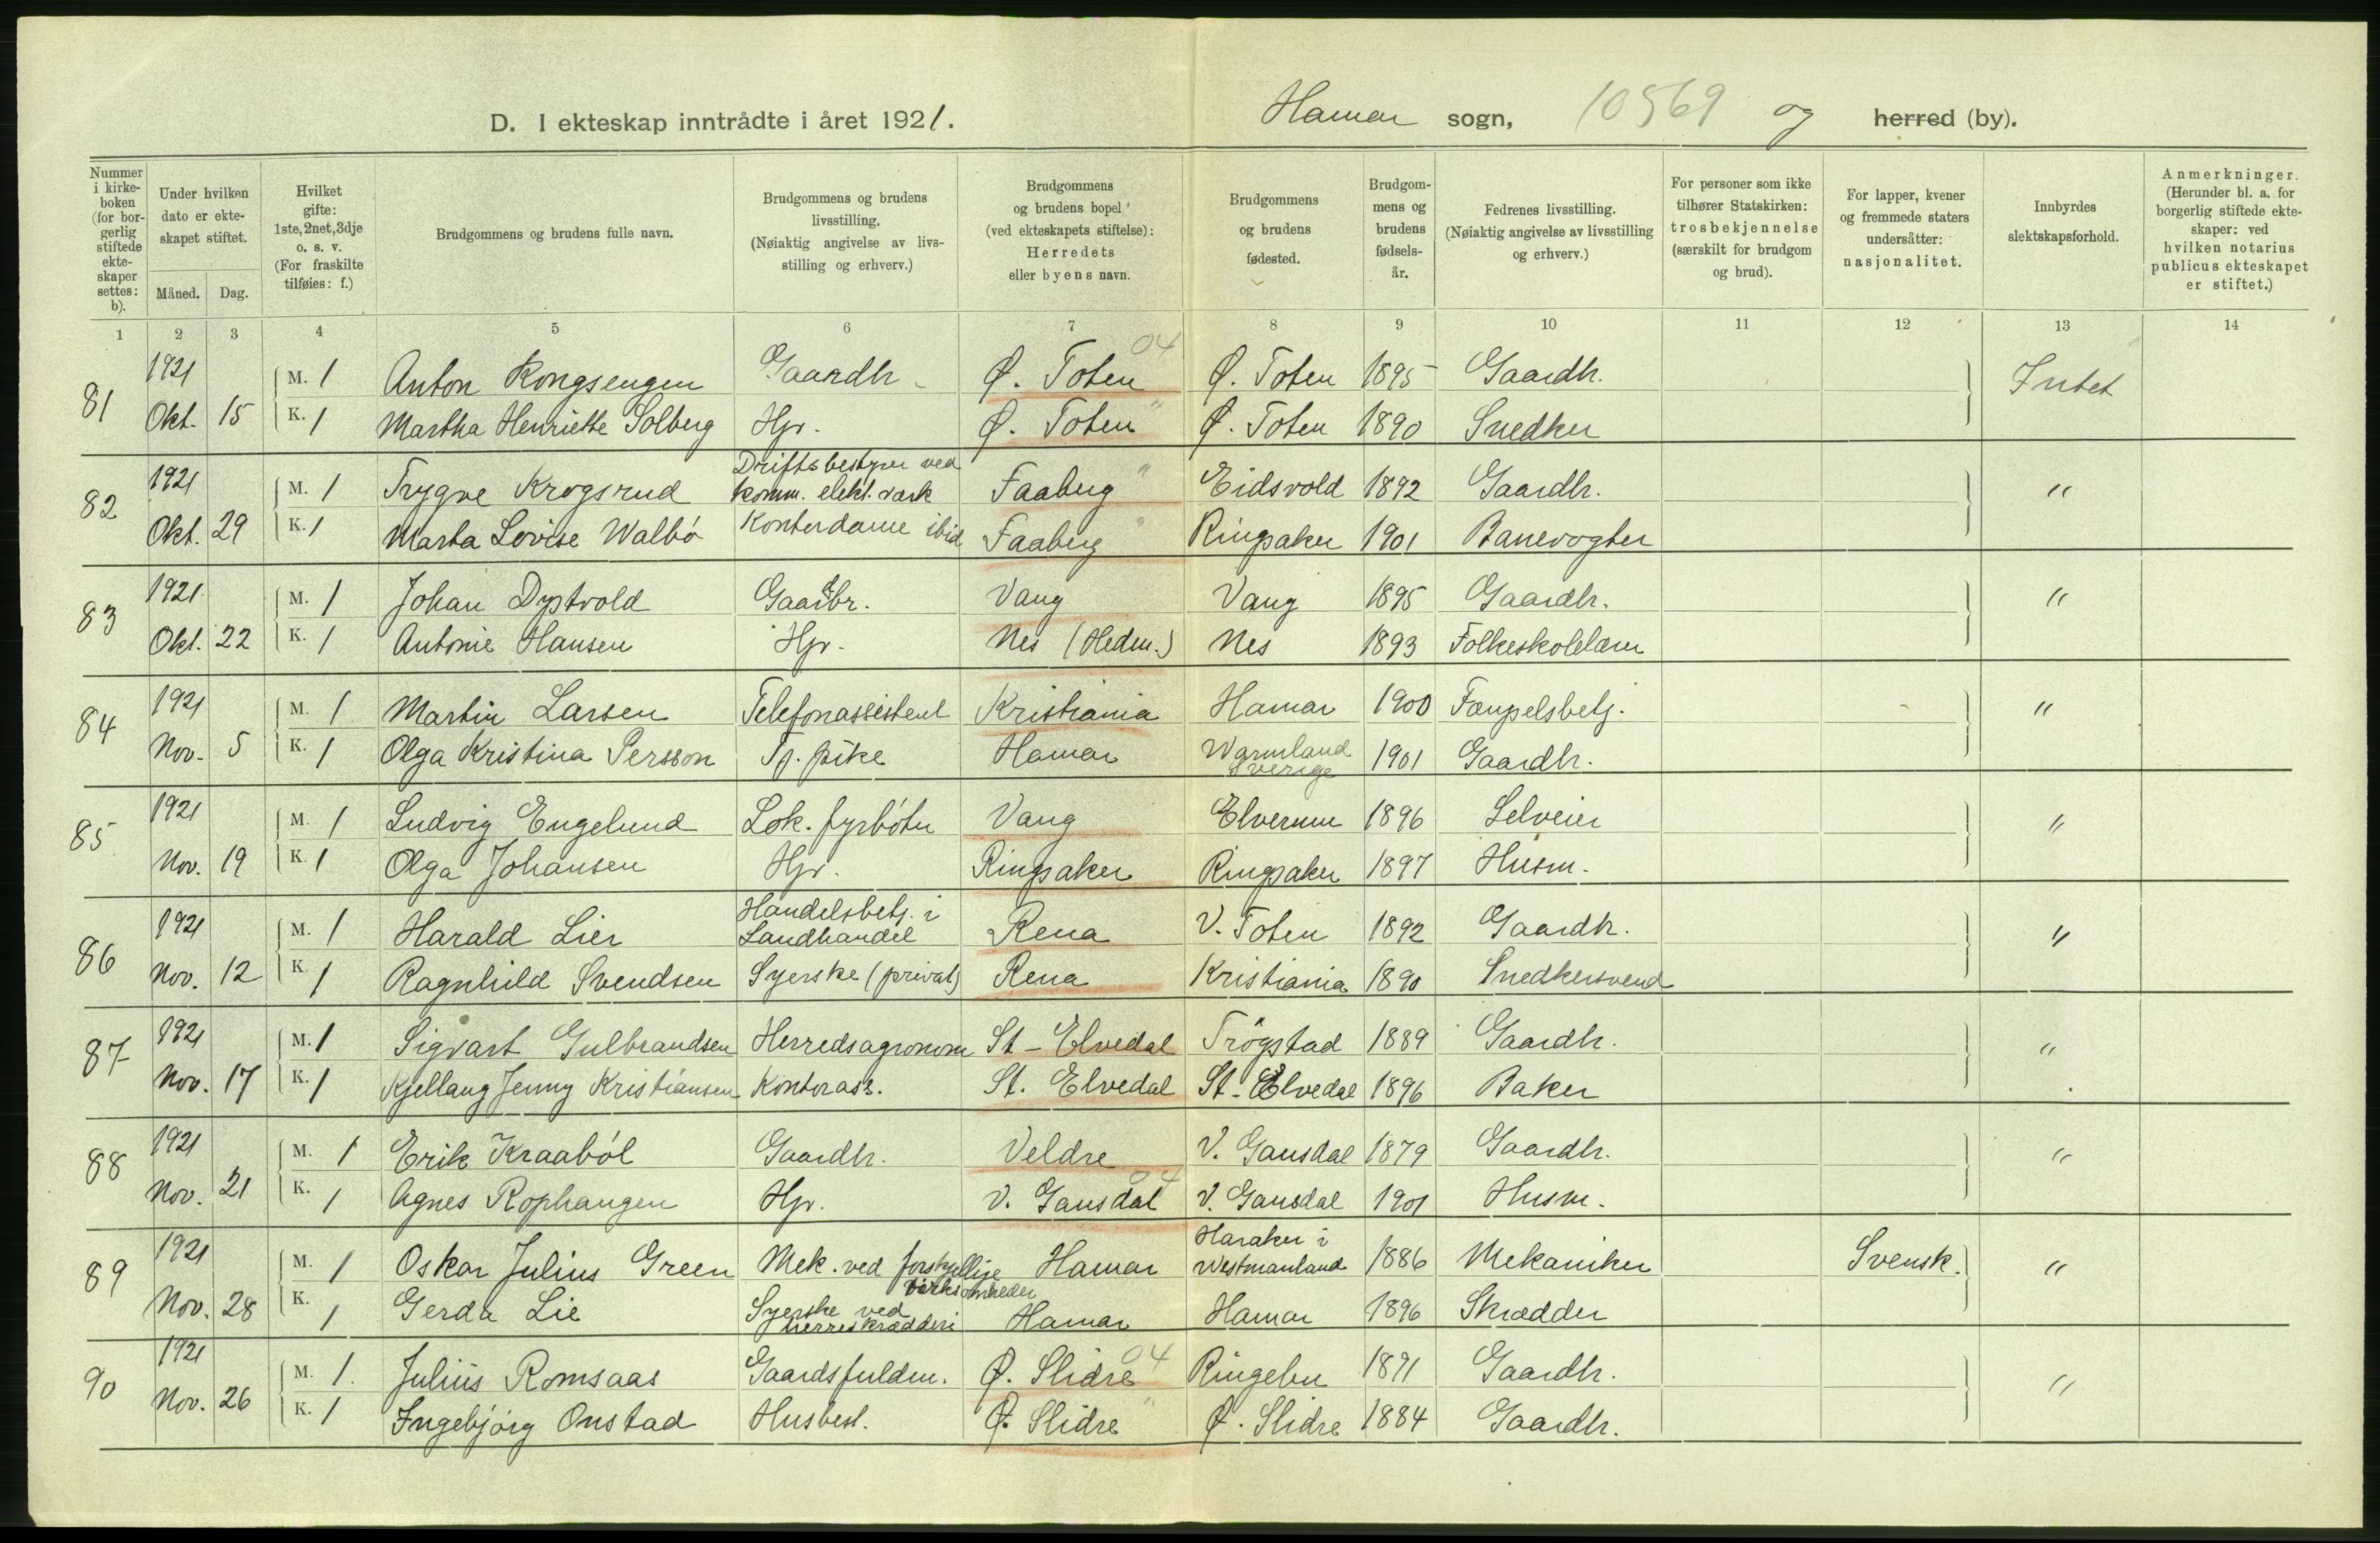 D. I ekteskap inntrådte i året 1921. Hamar sogn, 10569 og herred (by).
Nummer i kirkeboken (for borgerlig stiftede ekteskaper settes: b).
Under hvilken dato er ekteskapet stiftet.
Måned. Dag.
Hvilket gifte: 1ste, 2net, 3dje o. s. v. (For fraskilte tilføies: f.)
Brudgommens og brudens fulle navn.
Brudgommens og brudens livsstilling. (Nøiaktig angivelse av livsstilling og erhverv.)
Brudgommens og brudens bopel (ved ekteskapets stiftelse): Herredets eller byens navn.
Brudgommens og brudens fødested.
Brudgommens og brudens fødselsår.
Fedrenes livsstilling. (Nøiaktig angivelse av livsstilling og erhverv.)
For personer som ikke tilhører Statskirken: trosbekjennelse (særskilt for brudgom og brud).
For lapper, kvener og fremmede staters undersåtter: nasjonalitet.
Innbyrdes slektskapsforhold.
Anmerkninger. (Herunder bl. a. for borgerlig stiftede ekteskaper: ved hvilken notarius publicus ekteskapet er stiftet.)
1 2 3 4 5 6 7 8 9 10 11 12 13 14
04
81 1921 M. 1 Anton Kongsengen Gaardb. Ø. Toten Ø. Toten 1895 Gaardb. Intet
Okt. 15 K. 1 Martha Henriette Solberg Hjv. Ø. Toten " Ø. Toten 1890 Snedker
82 1921 M. 1 Trygve Krogsrud Driftsbestyrer ved komm. elekt. værk Faaberg " Eidsvold 1892 Gaardb. "
Okt. 29 K. 1 Marta Lovise Walbö Kontordame ibid Faaberg " Ringsaker 1901 Banevogter
83 1921 M. 1 Johan Dystvold Gaardbr. Vang Vang 1895 Gaardb. "
Okt. 22 K. 1 Antonie Hansen Hjv. Nes (Hedm.) Nes 1893 Folkeskolelærer
84 1921 M. 1 Martin Larsen Telefonassistent Kristiania Hamar 1900 Fængselsbetj. "
Nov. 5 K. 1 Olga Kristina Persson Tj. pike Hamar Warmland Sverige 1901 Gaardb.
85 1921 M. 1 Ludvig Engelund Lok. fyrböter Vang Elverum 1896 Selveier "
Nov. 19 K. 1 Olga Johansen Hjv. Ringsaker Ringsaker 1897 Husm.
86 1921 M. 1 Harald Lier Handelsbetj. i Landhandel Rena V. Toten 1892 Gaardb. "
Nov. 12 K. 1 Ragnhild Svendsen Syerske (privat) Rena Kristiania 1890 Snedkersvend
87 1921 M. 1 Sigvart Gulbrandsen Herredsagronom St - Elvedal Trögstad 1889 Gaardb. "
Nov. 17 K. 1 Kjellaug Jenny Kristiansen Kontorass. St. Elvedal St - Elvedal 1896 Baker
88 1921 M. 1 Erik Kraaböl Gaardb. Veldre V. Gausdal 1879 Gaardb. "
Nov. 21 K. 1 Agnes Rophaugen Hjv. V. Gausdal 04 V. Gausdal 1901 Husm.
89 1921 M. 1 Oskar Julius Green Mek. ved forskjellige virksomheder Hamar Haraker i Westmanland 1886 Mekaniker Svensk. "
Nov. 28 K. 1 Gerda Lie Syerske ved herreskrædderi Hamar Hamar 1896 Skrædder
90 1921 M. 1. Julius Romsaas Gaardsfuldm. Ø. Slidre 04 Ringebu 1891 Gaardb. "
Nov. 26 K. 1 Ingebjörg Onstad Husbest. Ø. Slidre " Ø. Slidre 1884 Gaardb.